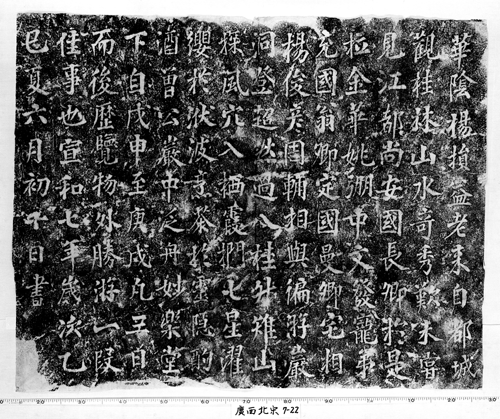 華陰楊損益老来自都城
觀桂林山水奇秀歎未嘗
見江都尚安國長卿於是
拉金華姚弼中文發龍
國翁卿定國曼卿宅相
楊俊彥國輔相與徧游巖
洞登超然過八桂升雉山
探風穴入栖霞七星濯
纓於伏波烹茶於靈隠酌
酒曽公巖中泛舟妙樂堂
下自戊申至庚戌凡五日
而後歷覽物外勝游一段
佳事也宣和七年歲次乙
巳夏六月初日書
廣西北京 7-22